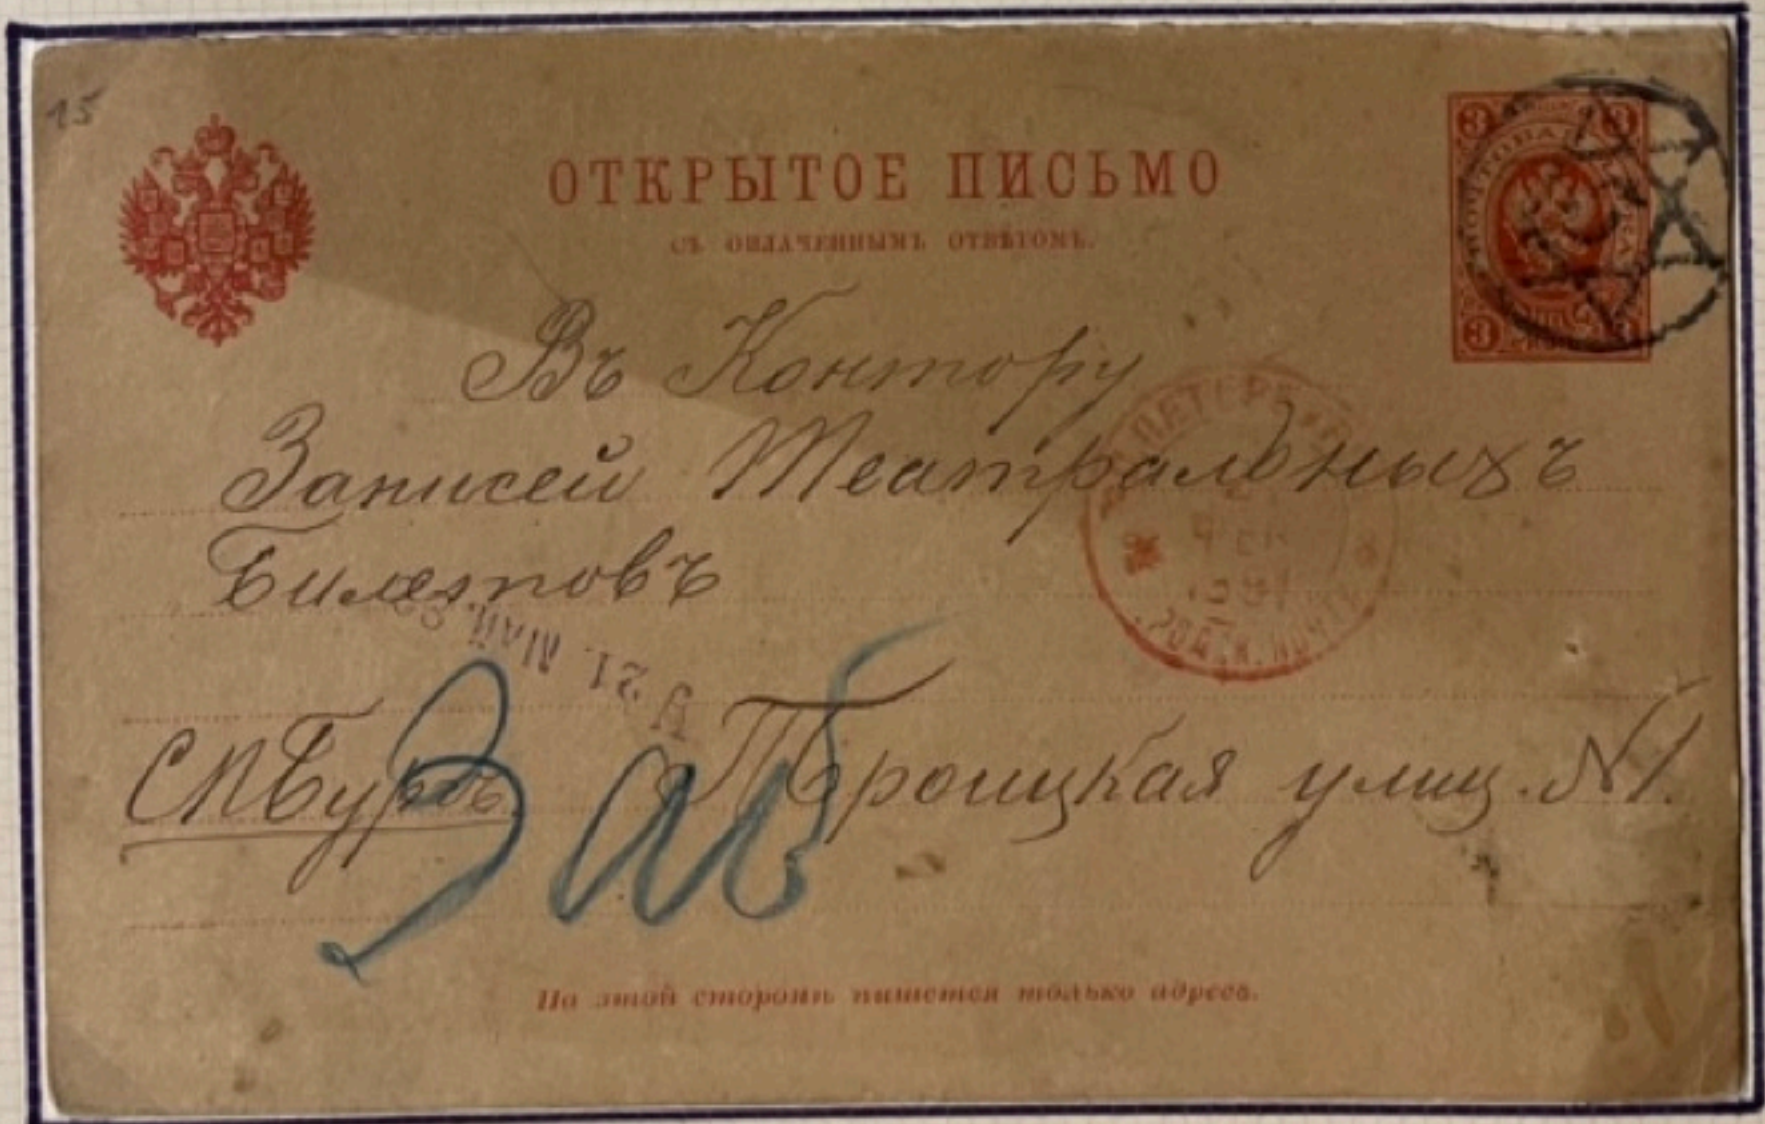 15
ОТКРЫТОЕ ПИСЬМО
СЪ ОПЛАЧЕННЫМЪ ОТВѢТОМЪ.
3 3
ПОЧТОВАЯ
3
Въ Контору
Записей Театральныхъ
Билетовъ
21. МАЙ.
СПБургъ. Троицкая улиц. №1.
На этой сторонѣ пишется только адресъ.